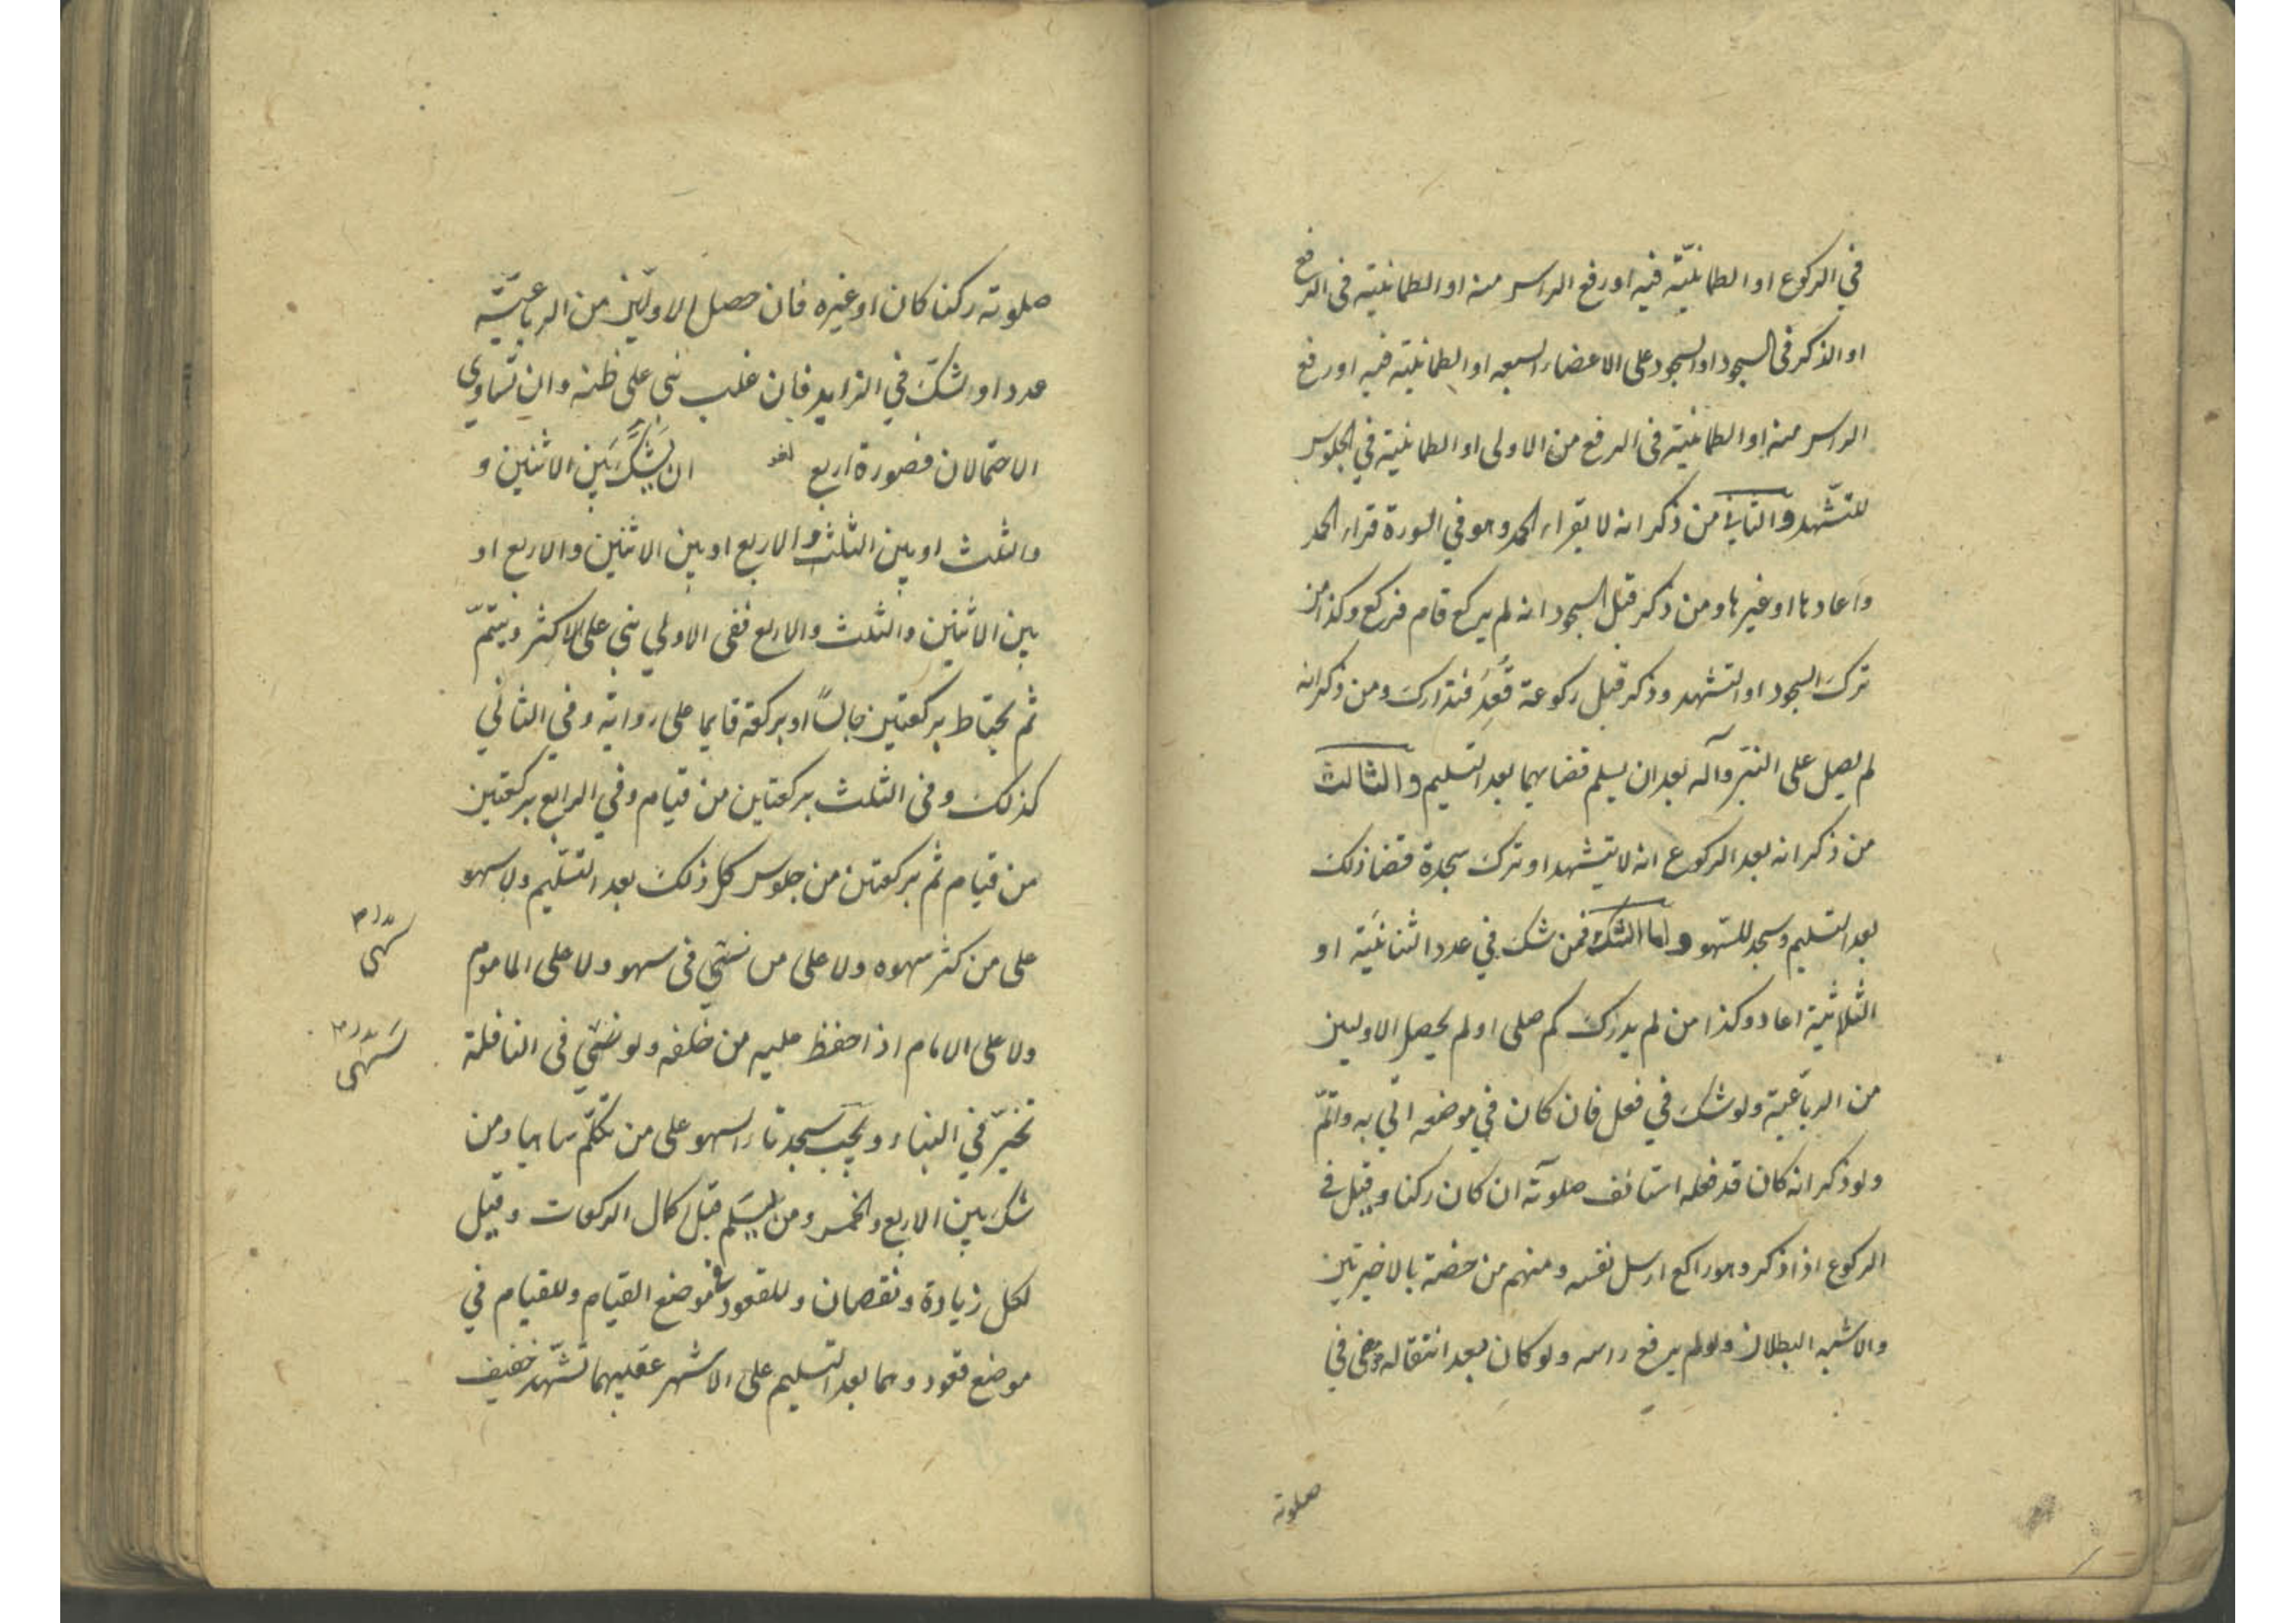 في الركوع او الطمانينة فيه او رفع الراس منه او الطمانينة فى الرفع
او الذكر فى السجود او السجود على الاعضاء السبعه او الطمانينة فيه او رفع
الراس منه او الطمانينة فى الرفع من الاولى او الطمانينة في الجلوس
للتشهد والثاني من ذكر انه لا يقراء الحمد وهو في السورة قراء الحمد
واعادها او غيرها ومن ذكر قبل السجود انه لم يركع قام فركع وكذا من
ترك السجود او التشهد وذكر قبل ركوعه قعد فتدارك ومن ذكر انه
لم يصل على النبي وآله بعد ان يسلم قضاهما بعد التسليم والثالث
من ذكر انه بعد الركوع انه لا يتشهد او ترك سجدة قضا ذلك
بعد التسليم وسجد للسهو واما الشك فمن شك في عدد الثنائية او
الثلاثية اعاد وكذا من لم يدرك كم صلى او لم يحصل الاوليين
من الرباعية ولو شك في فعل فان كان في موضعه اتى به واتمّ
ولو ذكر انه كان قد فعله استانف صلوته ان كان ركنا وقيل فى
الركوع اذا ذكر وهو راكع ارسل نفسه ومنهم من خصه بالاخيرتين
والاشبه البطلان ولو لم يرفع راسه ولو كان بعد انتقاله مضى في
صلوته
صلوته ركنا كان او غيره فان حصل الاوليين من الرباعيّة
عددا وشكّ في الزايد فان غلب بنى على ظنه وان تساوى
الاحتمالان فصورة اربع لغو ان يشك بين الاثنين و
والثلث او بين الثلث والاربع او بين الاثنين والاربع او
بين الاثنين والثلث والاربع ففى الاولي بنى على الاكثر ويتمّ
ثم يحتاط بركعتين جالسًا او بركعة قايما على رواية وفي الثاني
كذلك وفى الثلث بركعتين من قيام وفي الرابع بركعتين
من قيام ثم بركعتين من جلوس كل ذلك بعد التسليم ولا سهو
على من كثر سهوه ولا على من نسي فى سهو ولا على الماموم
سهى
ولا على الامام اذا حفظ عليه من خلفه ولو نسي فى النافلة
سهى
تخيّر في البناء ويجب سجدتا السهو على من تكلّم ساهيا ومن
شك بين الاربع والخمس ومن يسلم قبل اكمال الركعات وقيل
لكل زيادة ونقصان وللقعود في موضع القيام وللقيام في
موضع قعود وهما بعد التسليم على الاشهر عقيبهما تشهّد خفيف